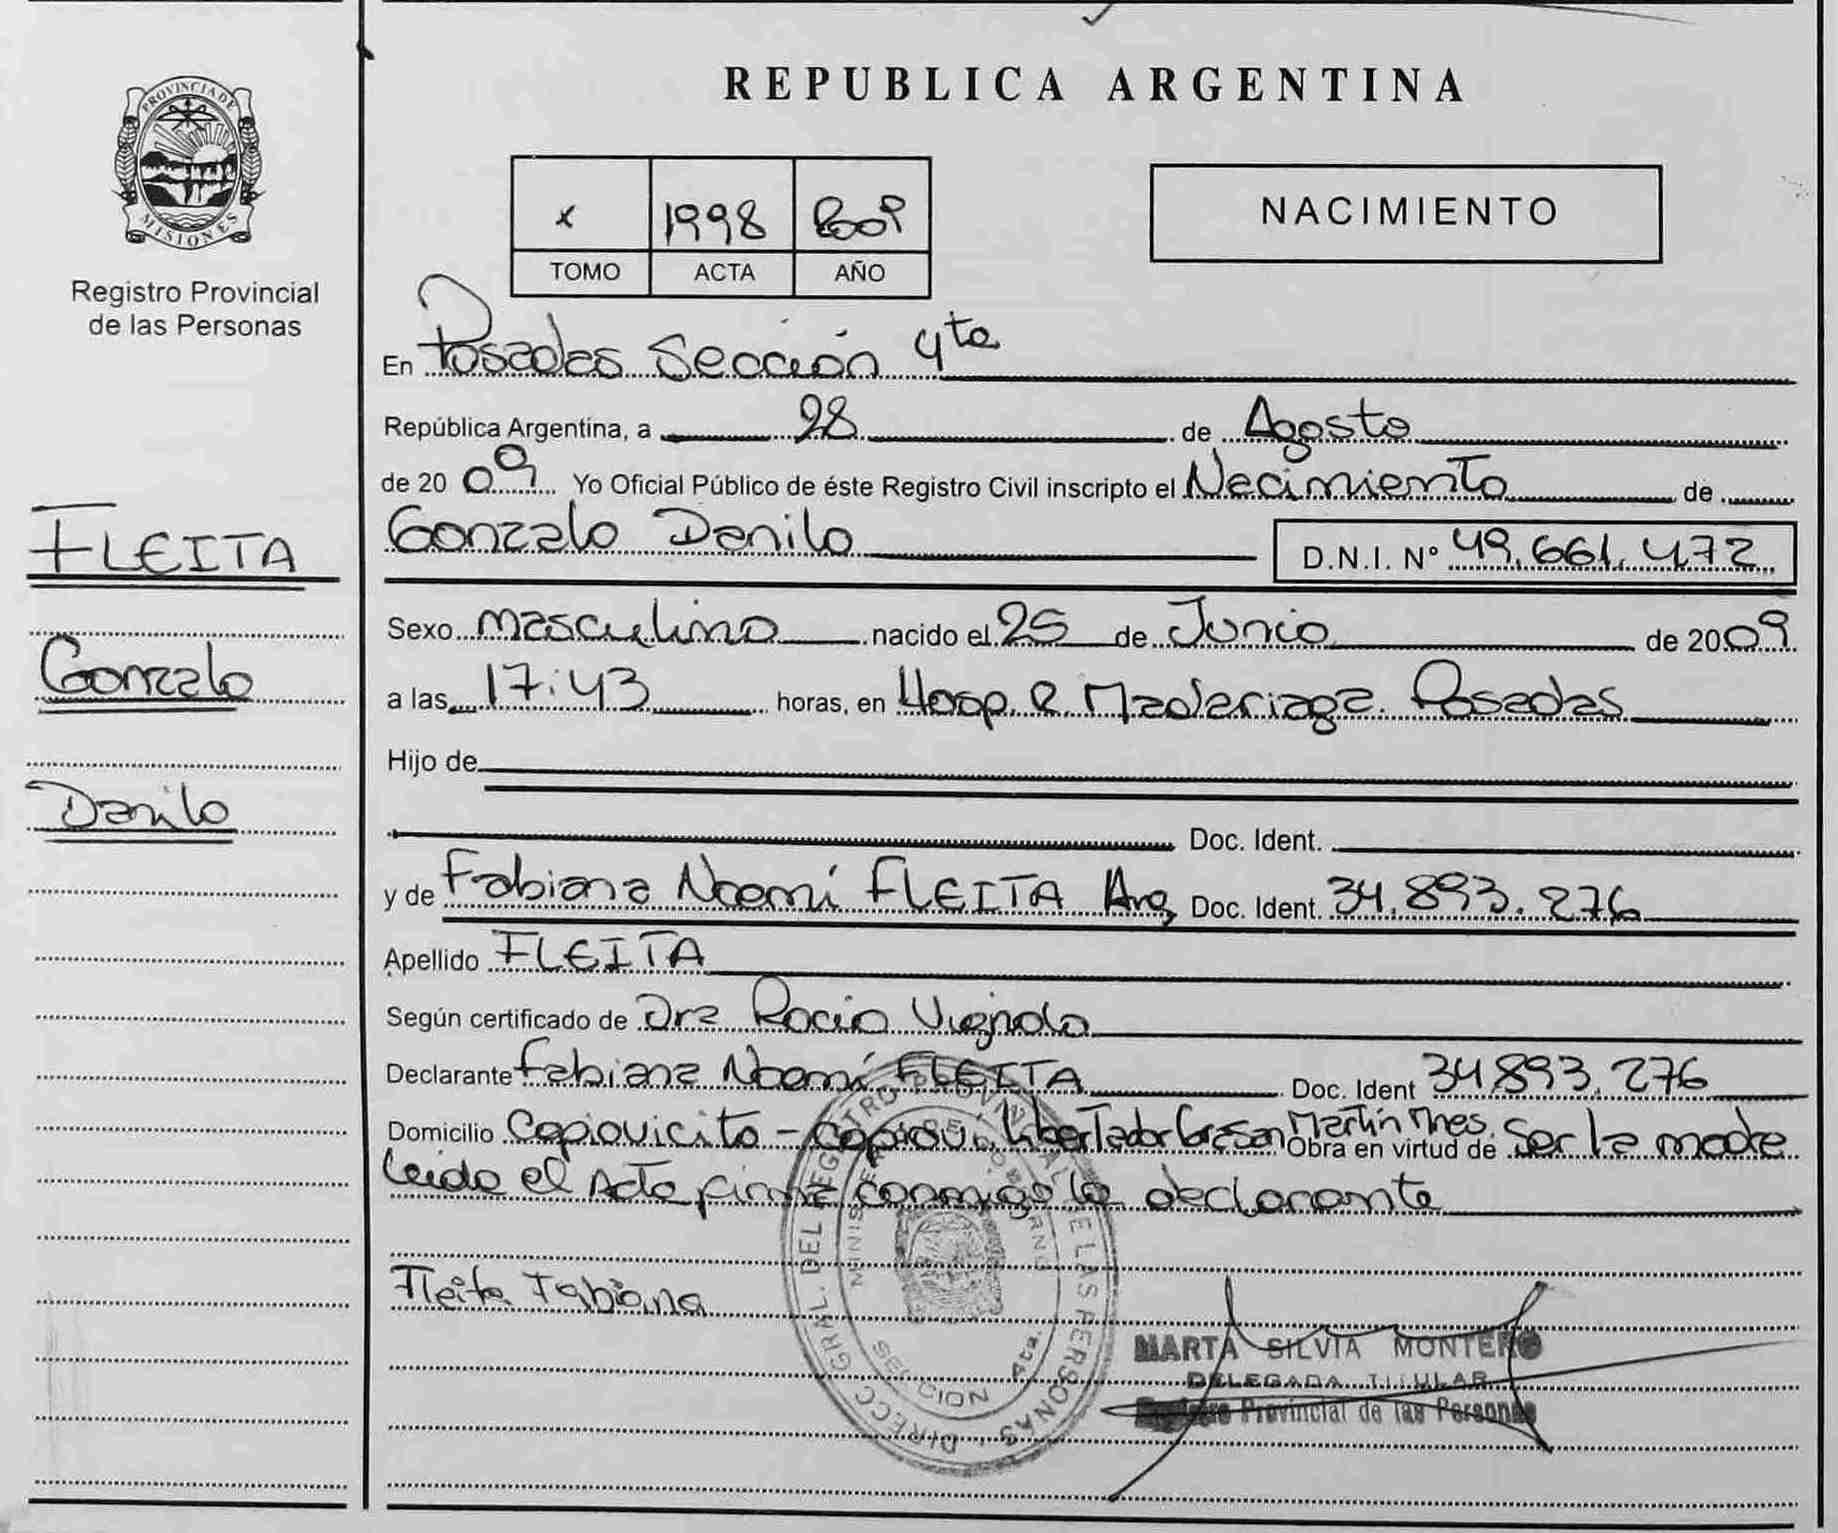 PROVINCIA DE
MISIONES
Registro Provincial
de las Personas
FLEITA
Gonzalo
Danilo
REPUBLICA ARGENTINA
x 1998 2009
TOMO ACTA AÑO
NACIMIENTO
En Posadas Sección 4ta
República Argentina, a 28 de Agosto
de 2009 Yo Oficial Público de éste Registro Civil inscripto el Nacimiento de
Gonzalo Danilo D.N.I. Nº 49.661.472
Sexo masculino nacido el 25 de Junio de 2009
a las 17:43 horas, en Hosp. R. Madariaga. Posadas
Hijo de
Doc. Ident.
y de Fabiana Noemí FLEITA Arg Doc. Ident. 34.893.276
Apellido FLEITA
Según certificado de Dra Rocio Vignolo
Declarante Fabiana Noemí FLEITA Doc. Ident 34893.276
Domicilio Capiovicito - Capiovi, Libertador Gr San Martín Mnes. Obra en virtud de ser la madre
Leida el Acta firma conmigo la declarante
Fleita Fabiana
DIRECC. GRAL. DEL REGISTRO PROVINCIAL DE LAS PERSONAS
SECCION 4ta.
MARTA SILVIA MONTERO
DELEGADA TITULAR
Registro Provincial de las Personas